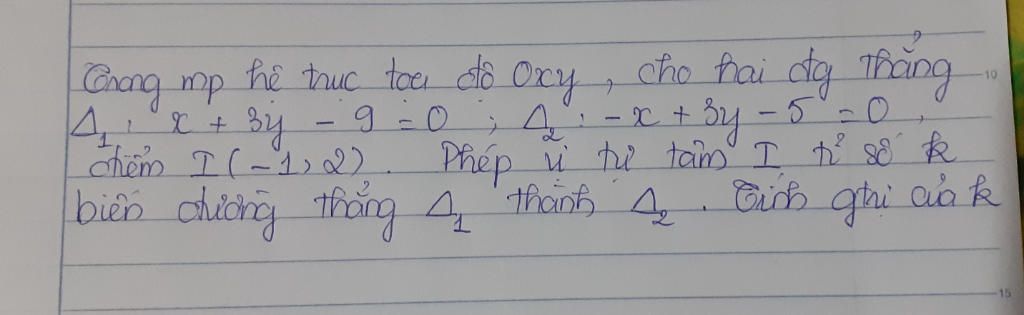 Trong mp hệ trục toạ độ Oxy, cho hai đg thẳng
Δ₁: x + 3y - 9 = 0 ; Δ₂: -x + 3y - 5 = 0,
điểm I(-1,2). Phép vị tự tâm I tỉ số k
biến đường thẳng Δ₁ thành Δ₂. Tính gtrị của k
10
15